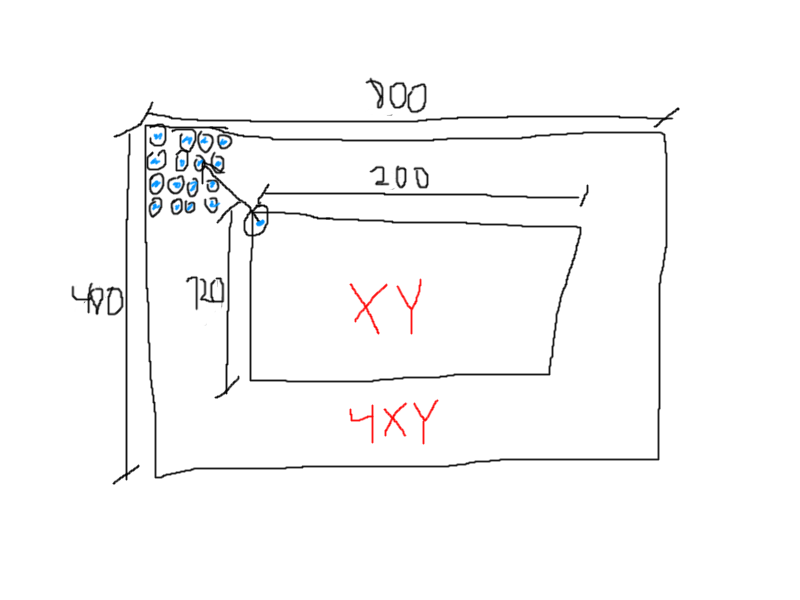 800
200
480
120
XY
4XY